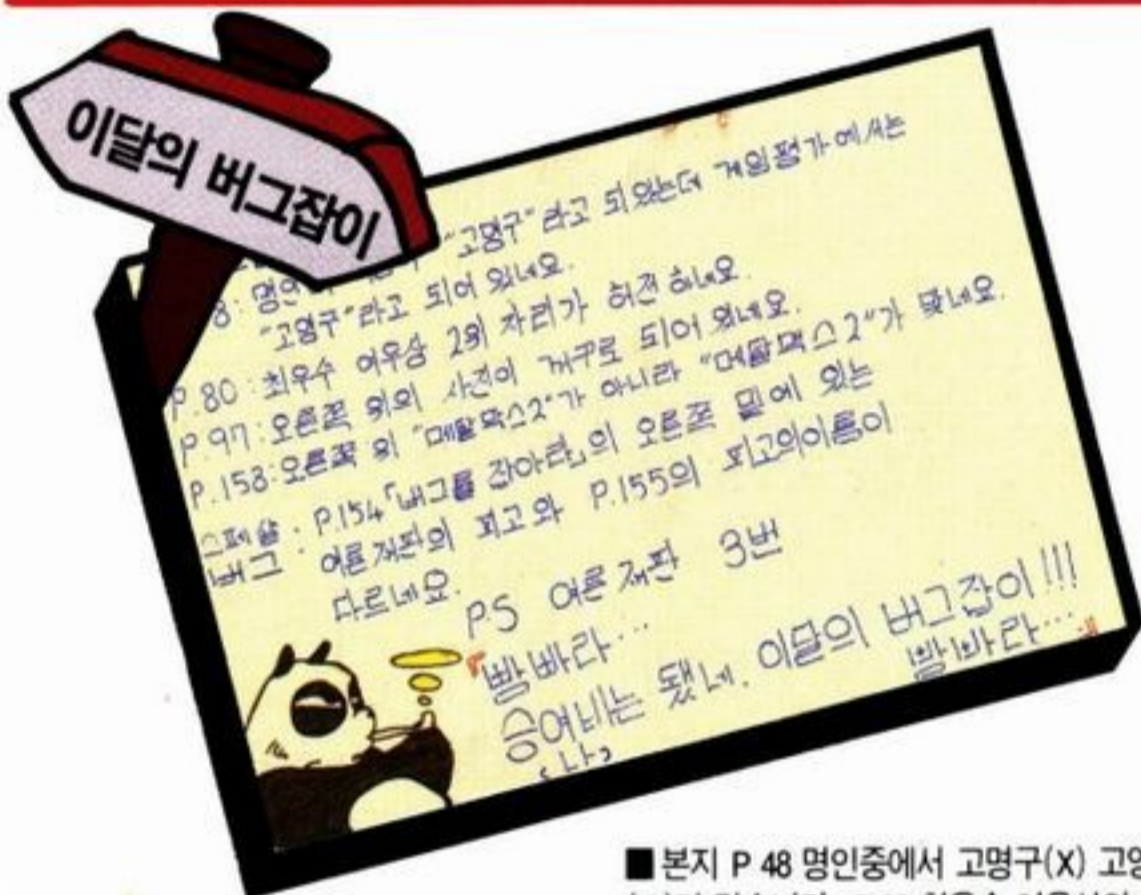 이달의 버그잡이
8: 명인 "고명구"라고 되있는데 게임평가에서는
"고영구"라고 되어 있네요.
P.80: 최우수 여우상 2위 자리가 허전하네요.
P.97: 오른쪽 위의 사진이 꺼꾸로 되어 있네요.
P.158: 오른쪽 위 "메탈막스2"가 아니라 "메탈맥스2"가 맞네요.
스페샬 : P.154「버그를 잡아라」의 오른쪽 밑에 있는
버그 여론재판의 피고와 P.155의 피고의이름이
다르네요.
P.S 여론재판 3번
『빵빠라…
승여비는 됐네. 이달의 버그잡이!!!
<나> 빵빠라…』
■ 본지 P 48 명인중에서 고명구(X) 고영